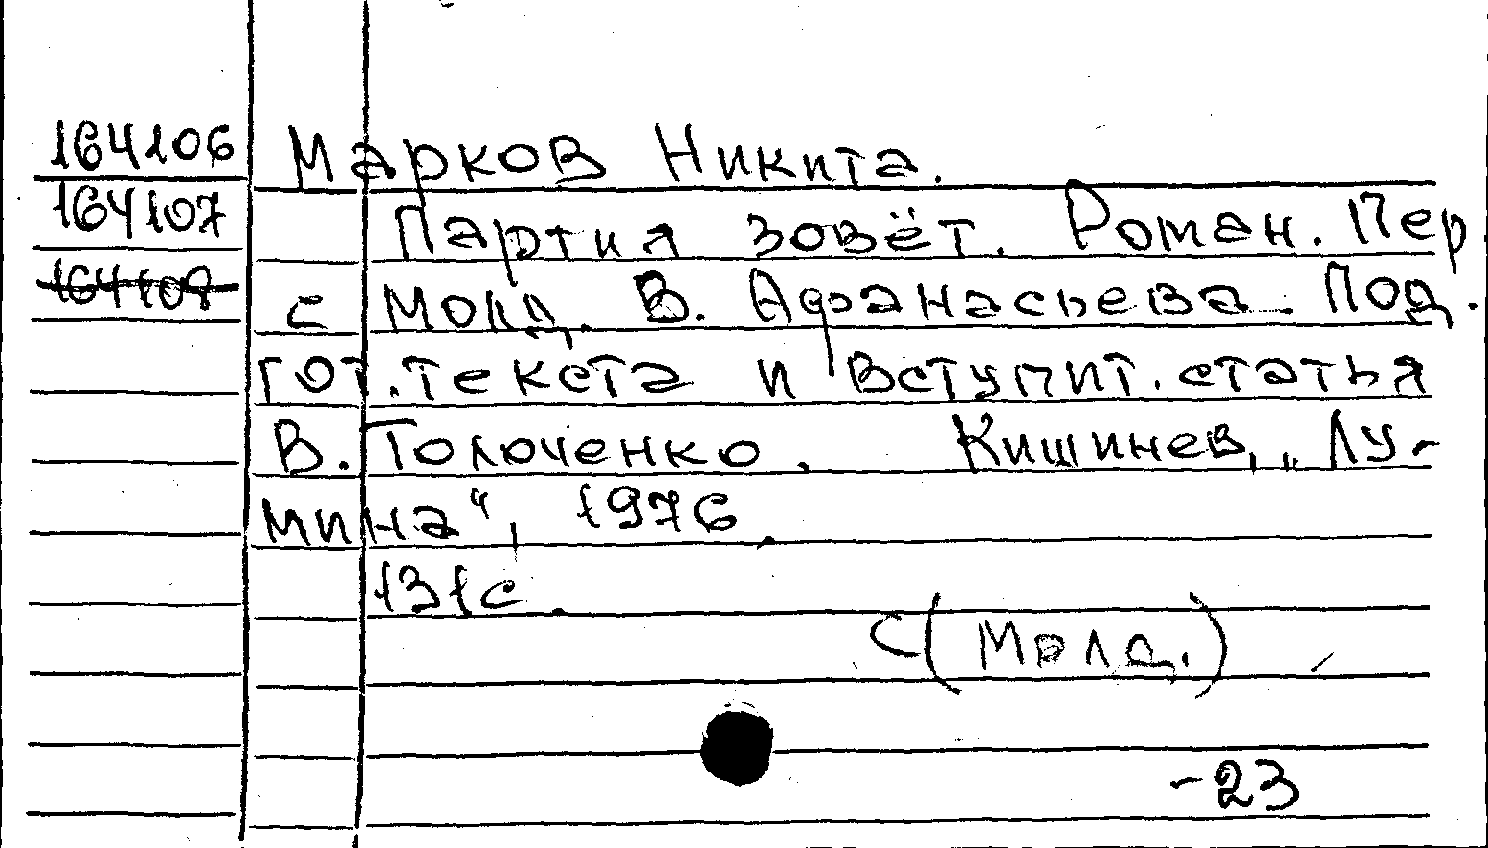 164106 Марков Никита.
164107 Партия зовёт. Роман. Пер
164108 с молд. В. Афанасьева. Под.
гот. текста и вступит. статья
В. Толоченко. Кишинев, „Лу-
мина“, 1976.
131с.
С(Молд.)
-23